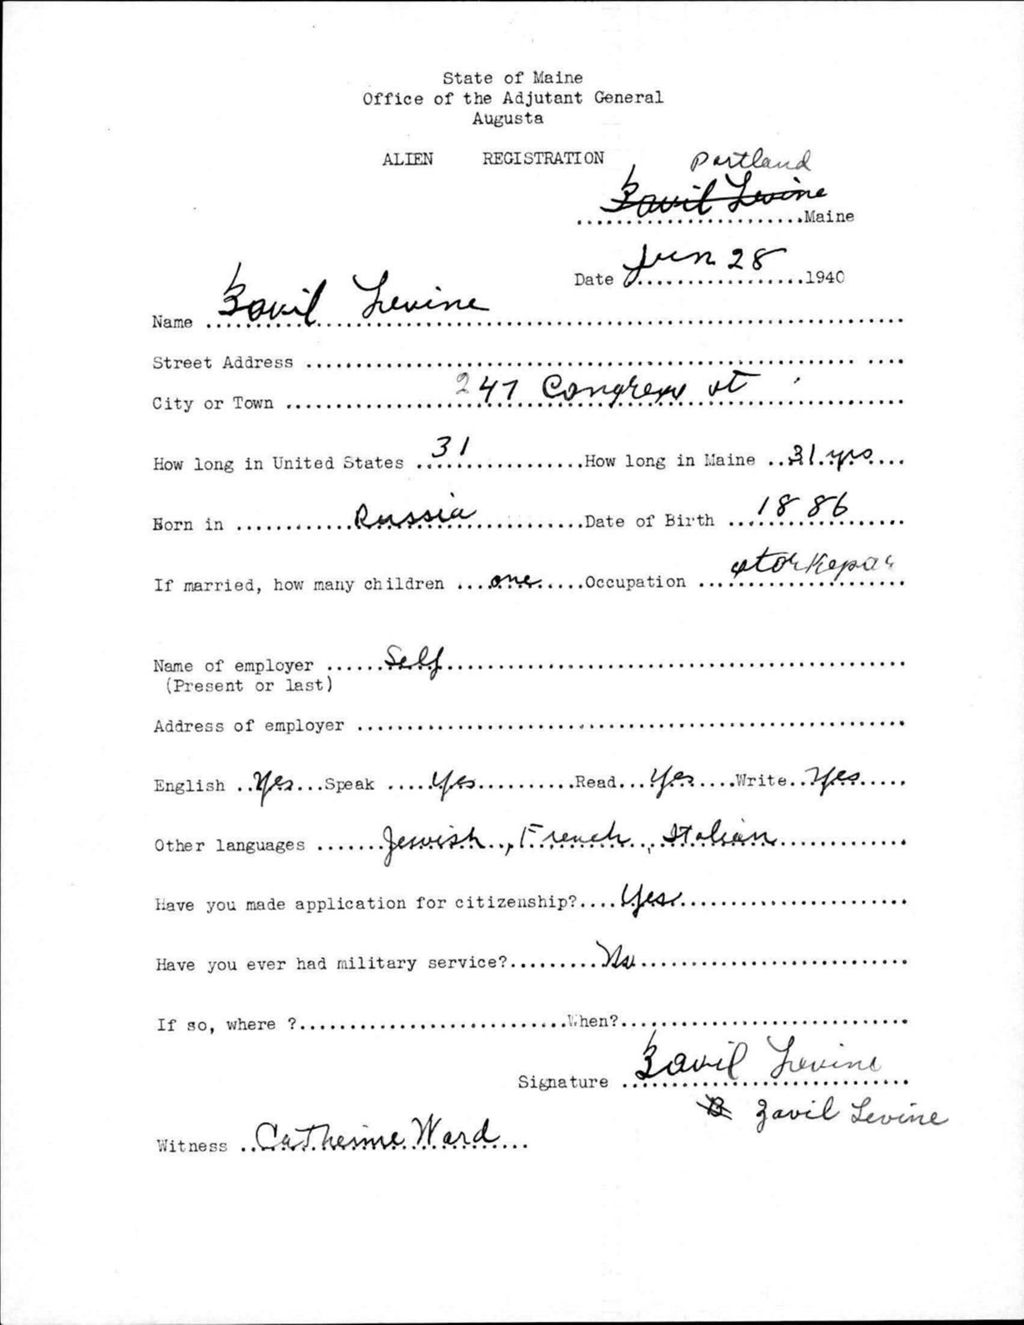 State of Maine
Office of the Adjutant General
Augusta
ALIEN REGISTRATION
Portland
Zavil Levine
........................Maine
Date Jun 28 1940
Name Zavil Levine
Street Address ........................
City or Town 247 Congress st
How long in United States 31 How long in Maine 31 yrs
Born in Russia Date of Birth 1886
If married, how many children one Occupation storkepar
Name of employer Self
(Present or last)
Address of employer ........................
English Yes Speak Yes Read Yes Write Yes
Other languages Jewish, French, Italian
Have you made application for citizenship? Yes
Have you ever had military service? No
If so, where ?........................When?........................
Signature Zavil Levine
Zavil Levine
Witness Catherine Ward